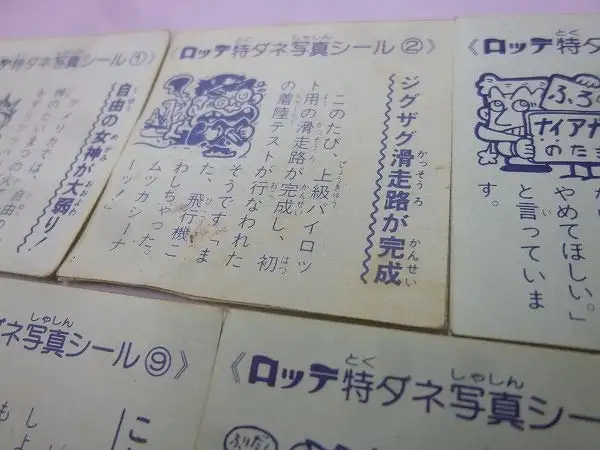 特ダネ写真シール①》
自由の女神が大弱り!
アメリカでは、
《ロッテ特ダネ写真シール②》
ジグザグ滑走路が完成
このたび、上級パイロッ
ト用の滑走路が完成し、初
の着陸テストが行なわれた
そうです。「ま
た、飛行機こ
わしちゃった。
ムツカシーナ
ーッ!」
《ロッテ特ダネ
ふろの
ナイアガ
のたき
やめてほしい。」
と言っていま
す。
ダネ写真シール⑨》
《ロッテ特ダネ写真シー